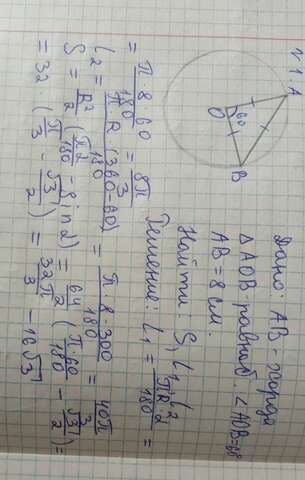 N 1.
A
O
60
B
Дано: AB - хорда
△AOB - равноб. ∠AOB=60
AB = 8 см.
Найти: S, L₁, L₂
Решение: L₁ = πR·α/180 =
= π·8·60/180 = 8π/3
L₂ = πR(360-60)/180 = π·8·300/180 = 40π/3
S = R²/2 (πα/180 - sin α) = 64/2 (π·60/180 - √3/2) =
= 32 (π/3 - √3/2) = 32π/3 - 16√3